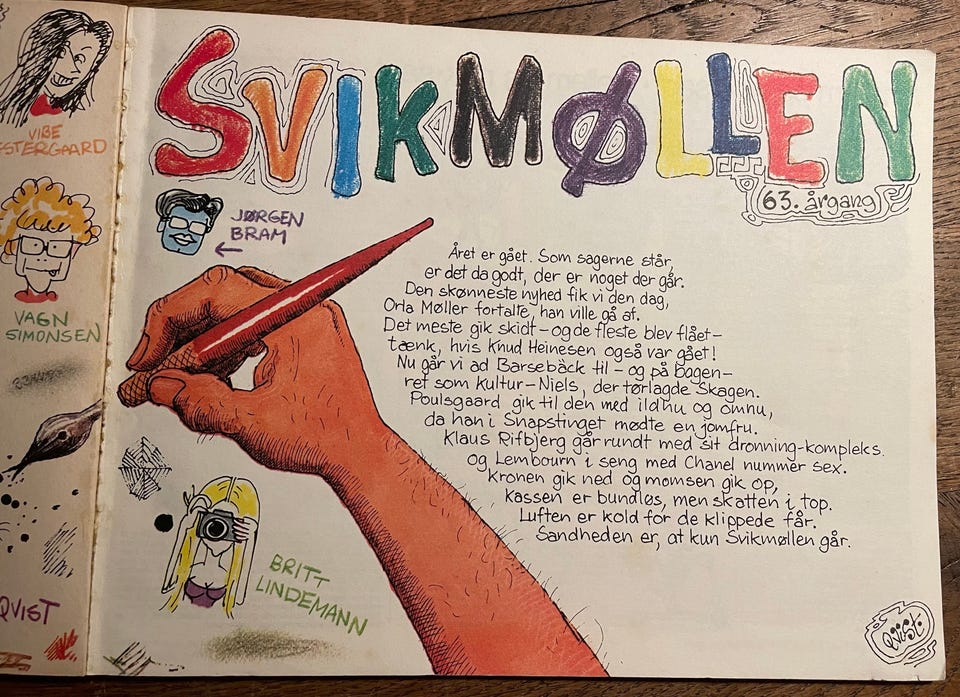 VIBE
ESTERGAARD
VAGN
SIMONSEN
QVIST
SVIKMØLLEN
63. årgang
JØRGEN
BRAM
Året er gået. Som sagerne står,
er det da godt, der er noget der går.
Den skønneste nyhed fik vi den dag,
Orla Møller fortalte, han ville gå af.
Det meste gik skidt – og de fleste blev flået –
tænk, hvis Knud Heinesen også var gået!
Nu går vi ad Barsebäck til – og på bagen –
ret som kultur – Niels, der tørlagde Skagen.
Poulsgaard gik til den med ild'nu og omnu,
da han i Snapstinget mødte en jomfru.
Klaus Rifbjerg går rundt med sit dronning-kompleks.
og Lembourn i seng med Chanel nummer sex.
Kronen gik ned og momsen gik op,
kassen er bundløs, men skatten i top.
Luften er kold for de klippede får.
Sandheden er, at kun Svikmøllen går.
BRITT
LINDEMANN
QVIST.